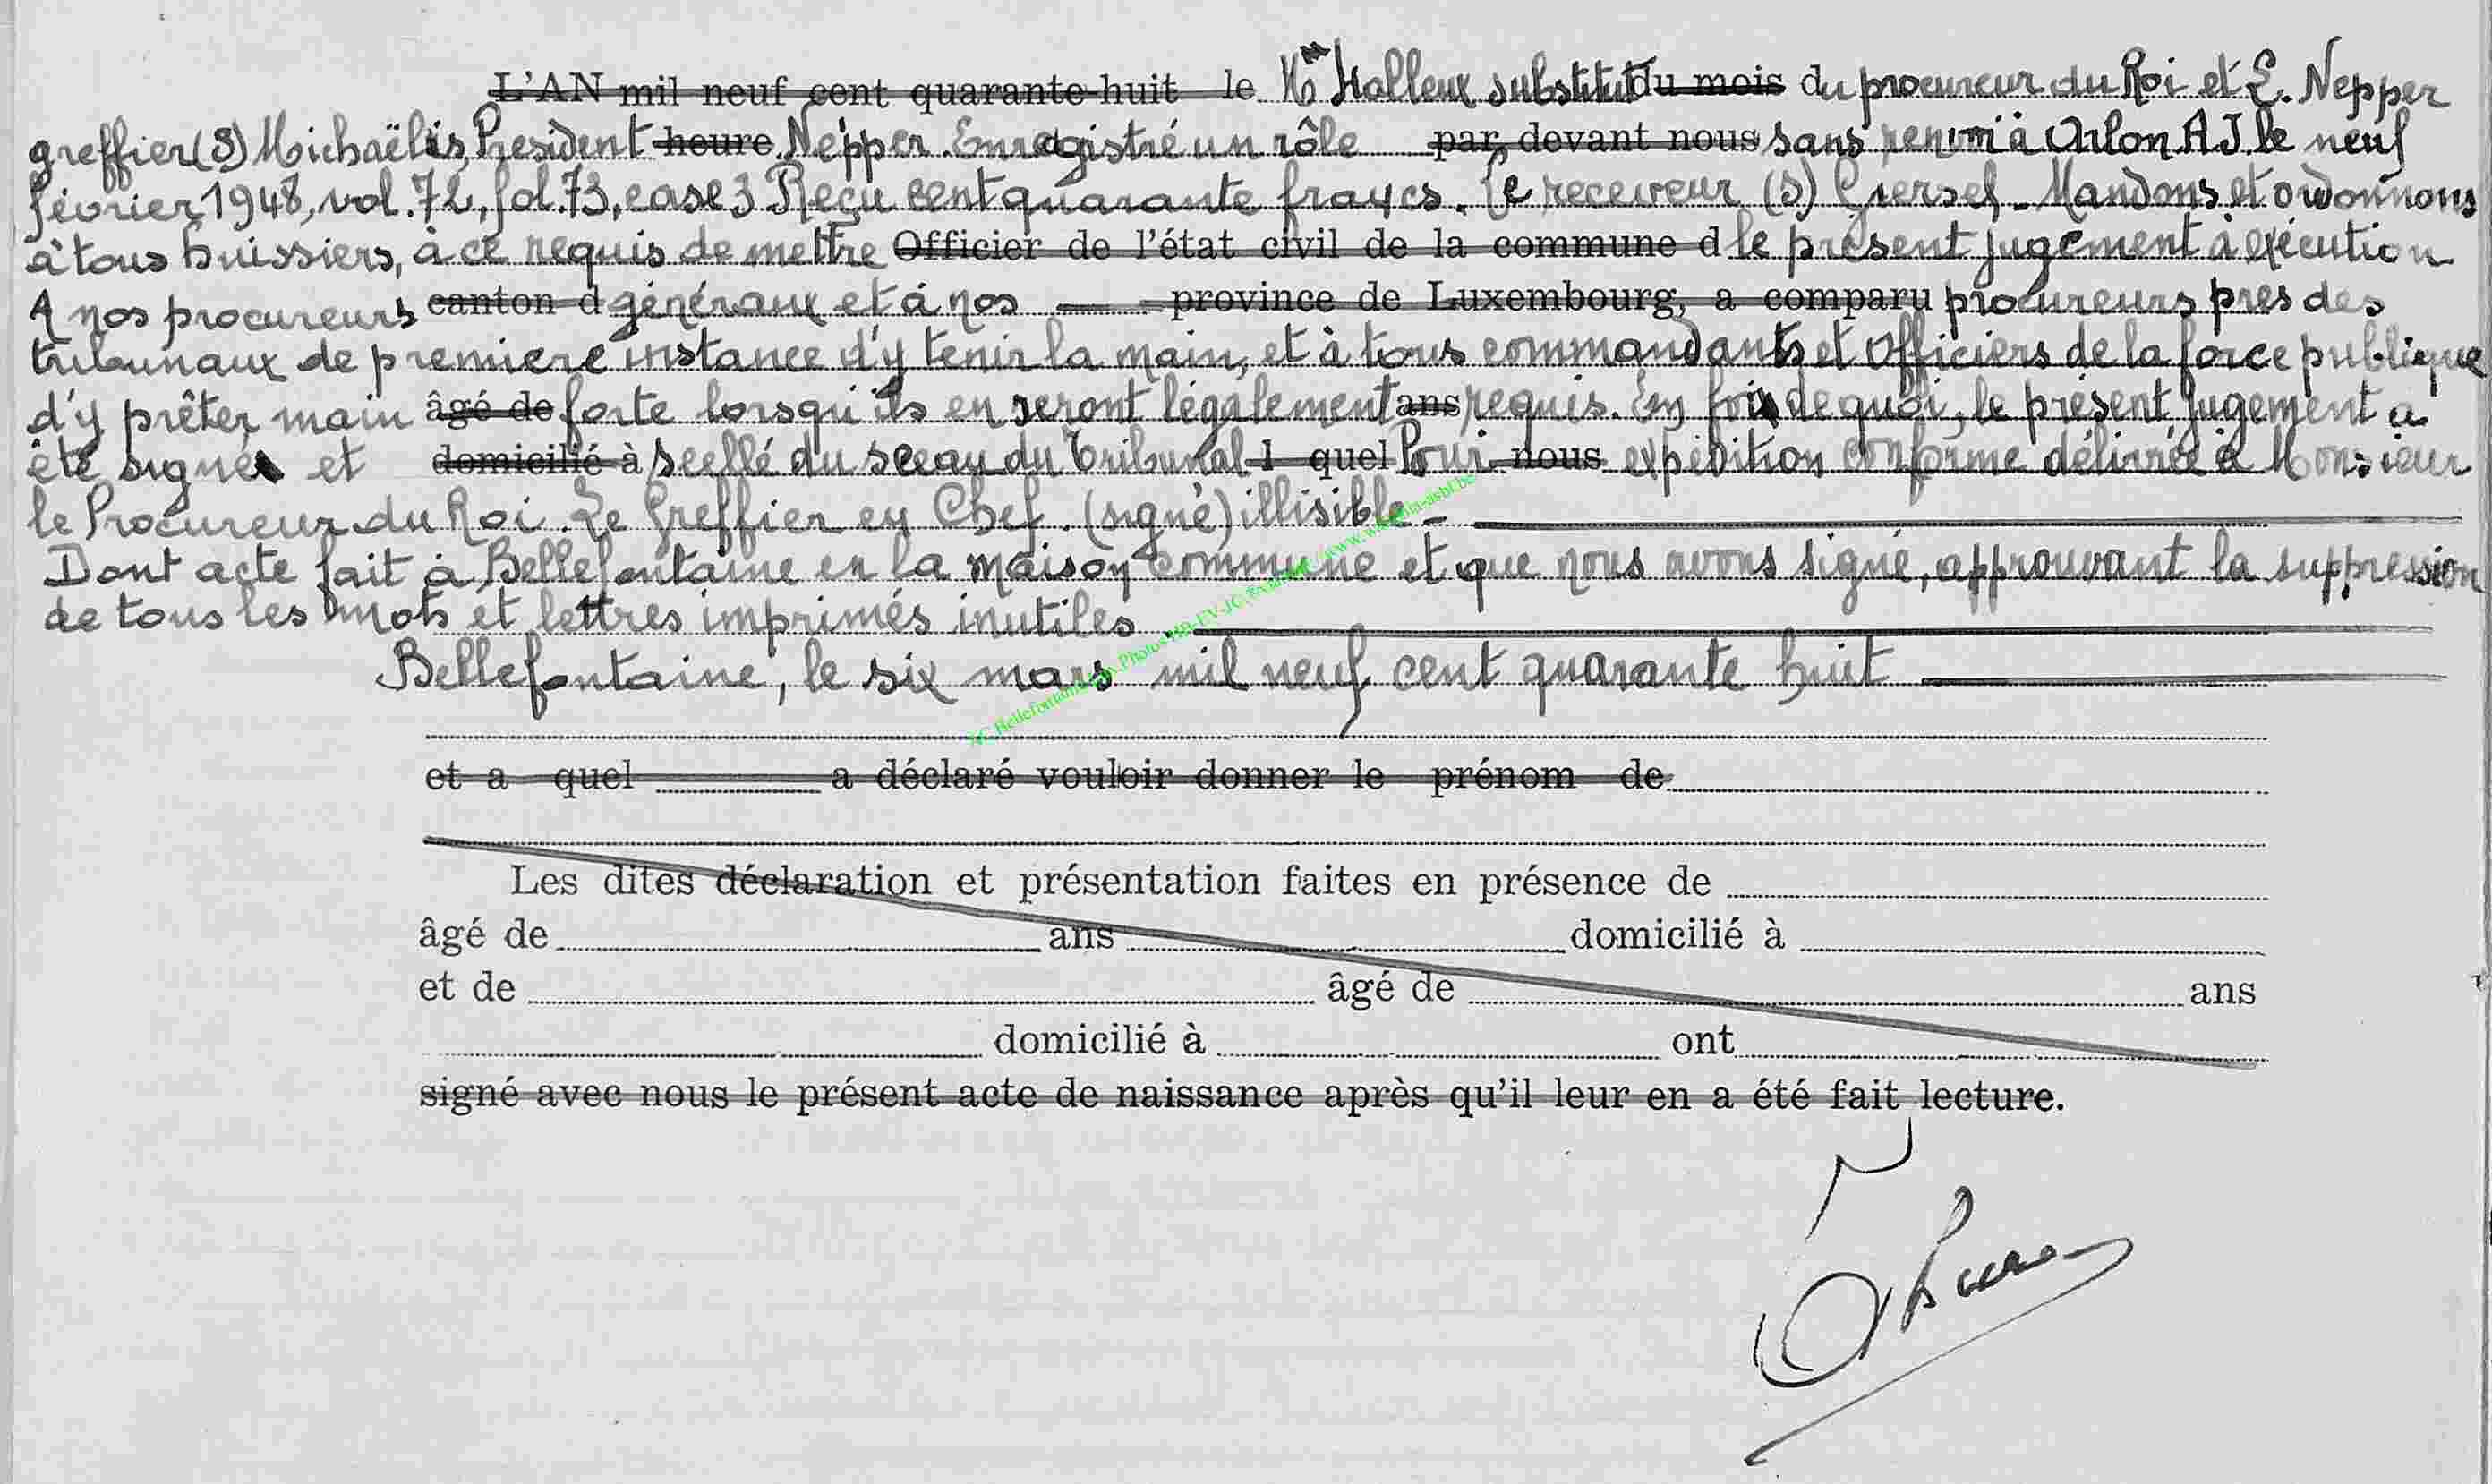 L'AN mil neuf cent quarante-huit le Mr Halleux substitut du mois du procureur du Roi et E. Nepper
greffier (S) Michaëlis, Président heure Nepper. Enregistré un rôle par devant nous sans renvoi à Arlon A.J. le neuf
février 1948, vol. 72, fol. 73, case 3 Reçu cent quarante francs. Le receveur (S) Giersch - Mandons et ordonnons
à tous huissiers, à ce requis de mettre Officier de l'état civil de la commune d le présent jugement à exécution
A nos procureurs canton d généraux et à nos province de Luxembourg, a comparu procureurs près des
tribunaux de première instance d'y tenir la main, et à tous commandants et Officiers de la force publique
d'y prêter main âgé de forte lorsqu'ils en seront légalement ans requis. En foi de quoi, le présent jugement a
été signé et domicilié à scellé du sceau du Tribunal l quel Pour nous expédition conforme délivrée à Monsieur
le Procureur du Roi. Le Greffier en Chef. (signé) illisible -
Dont acte fait à Bellefontaine en la maison commune et que nous avons signé, approuvant la suppression
de tous les mots et lettres imprimés inutiles
Bellefontaine, le six mars mil neuf cent quarante huit
et a quel a déclaré vouloir donner le prénom de
Les dites déclaration et présentation faites en présence de
âgé de ans domicilié à
et de âgé de ans
domicilié à ont
signé avec nous le présent acte de naissance après qu'il leur en a été fait lecture.